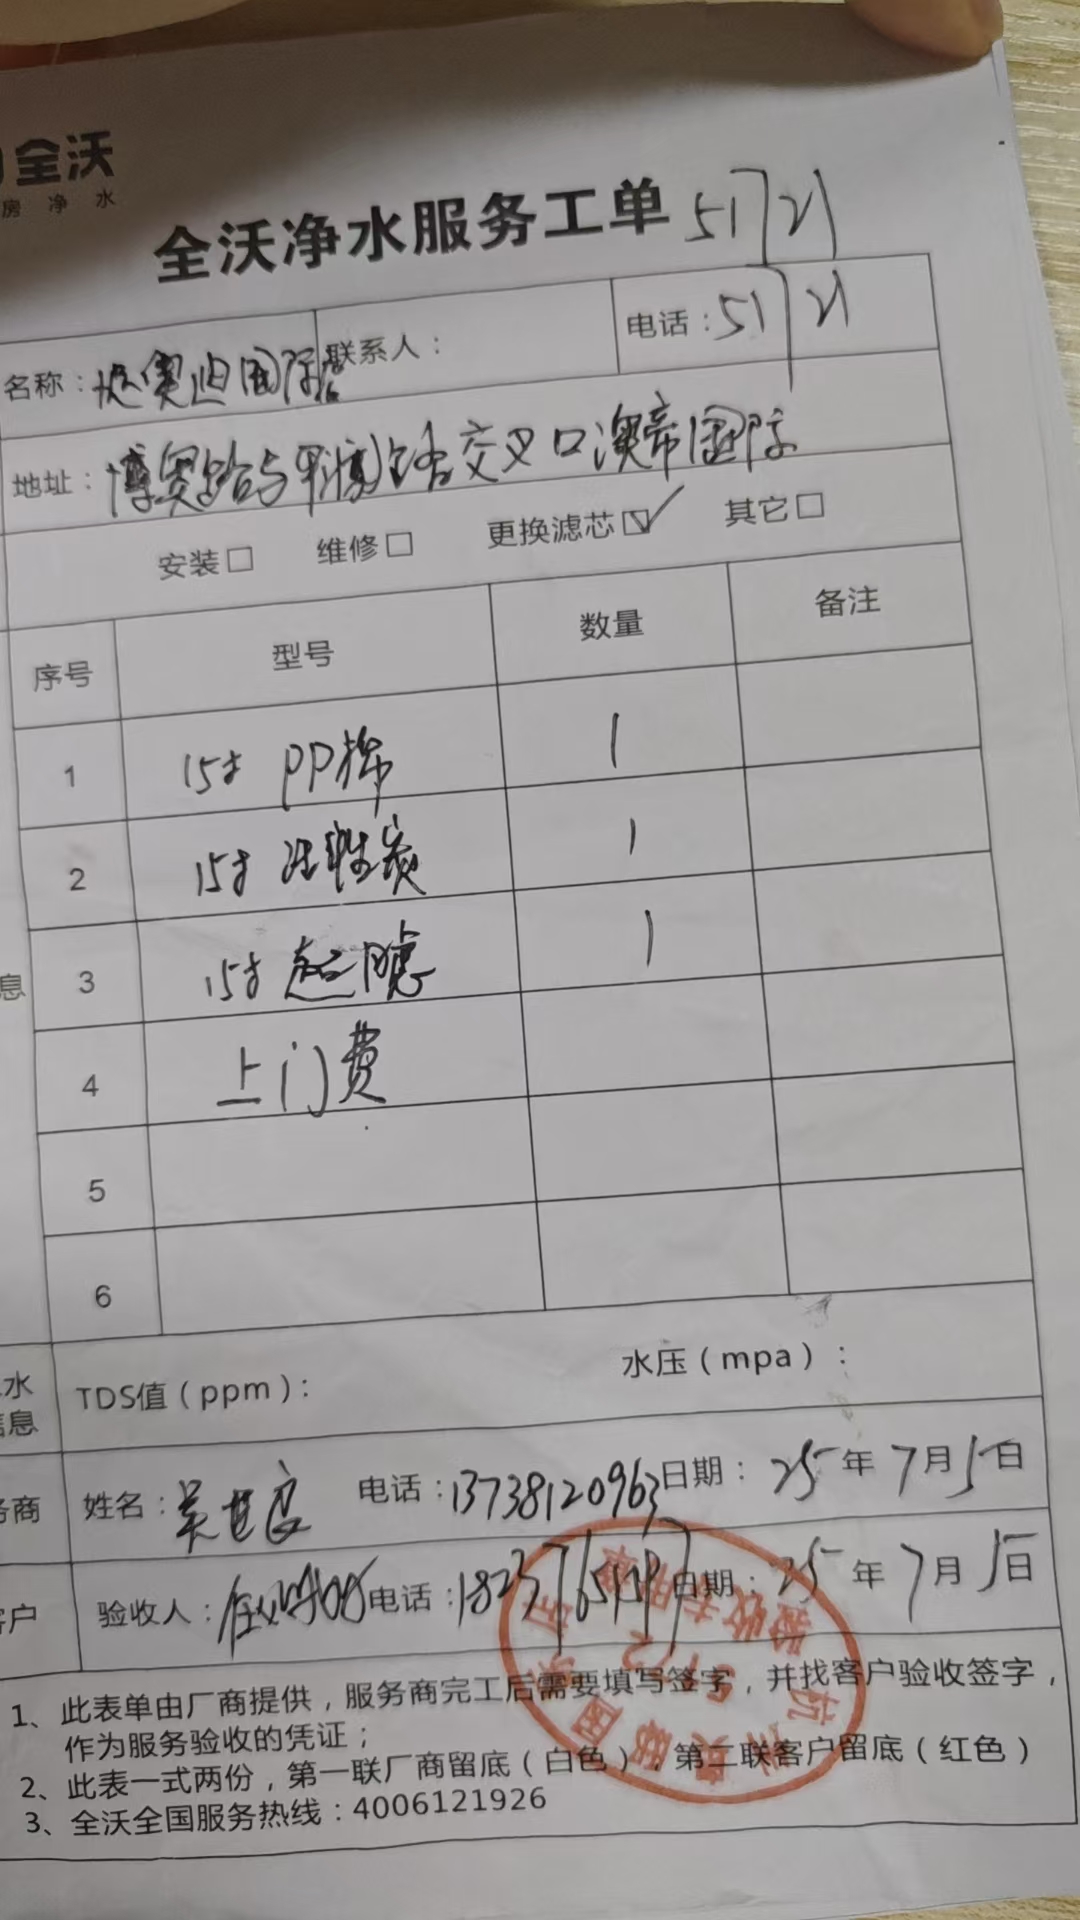 全沃
房净水
全沃净水服务工单 51721
名称： 奥迪国际店 联系人： 电话：51721
地址：博奥路与平澜路交叉口澳帝国际
安装□ 维修□ 更换滤芯☑ 其它□
序号 型号 数量 备注
1 15寸 PP棉 1
2 15寸 活性炭 1
息 3 15寸 超滤 1
4 上门费
5
6
水 TDS值（ppm）： 水压（mpa）：
信息
务商 姓名：吴世良 电话：13738120963 日期：25年7月5日
客户 验收人： 电话： 日期：25年7月5日
1、此表单由厂商提供，服务商完工后需要填写签字，并找客户验收签字，
作为服务验收的凭证；
2、此表一式两份，第一联厂商留底（白色），第二联客户留底（红色）
3、全沃全国服务热线：4006121926